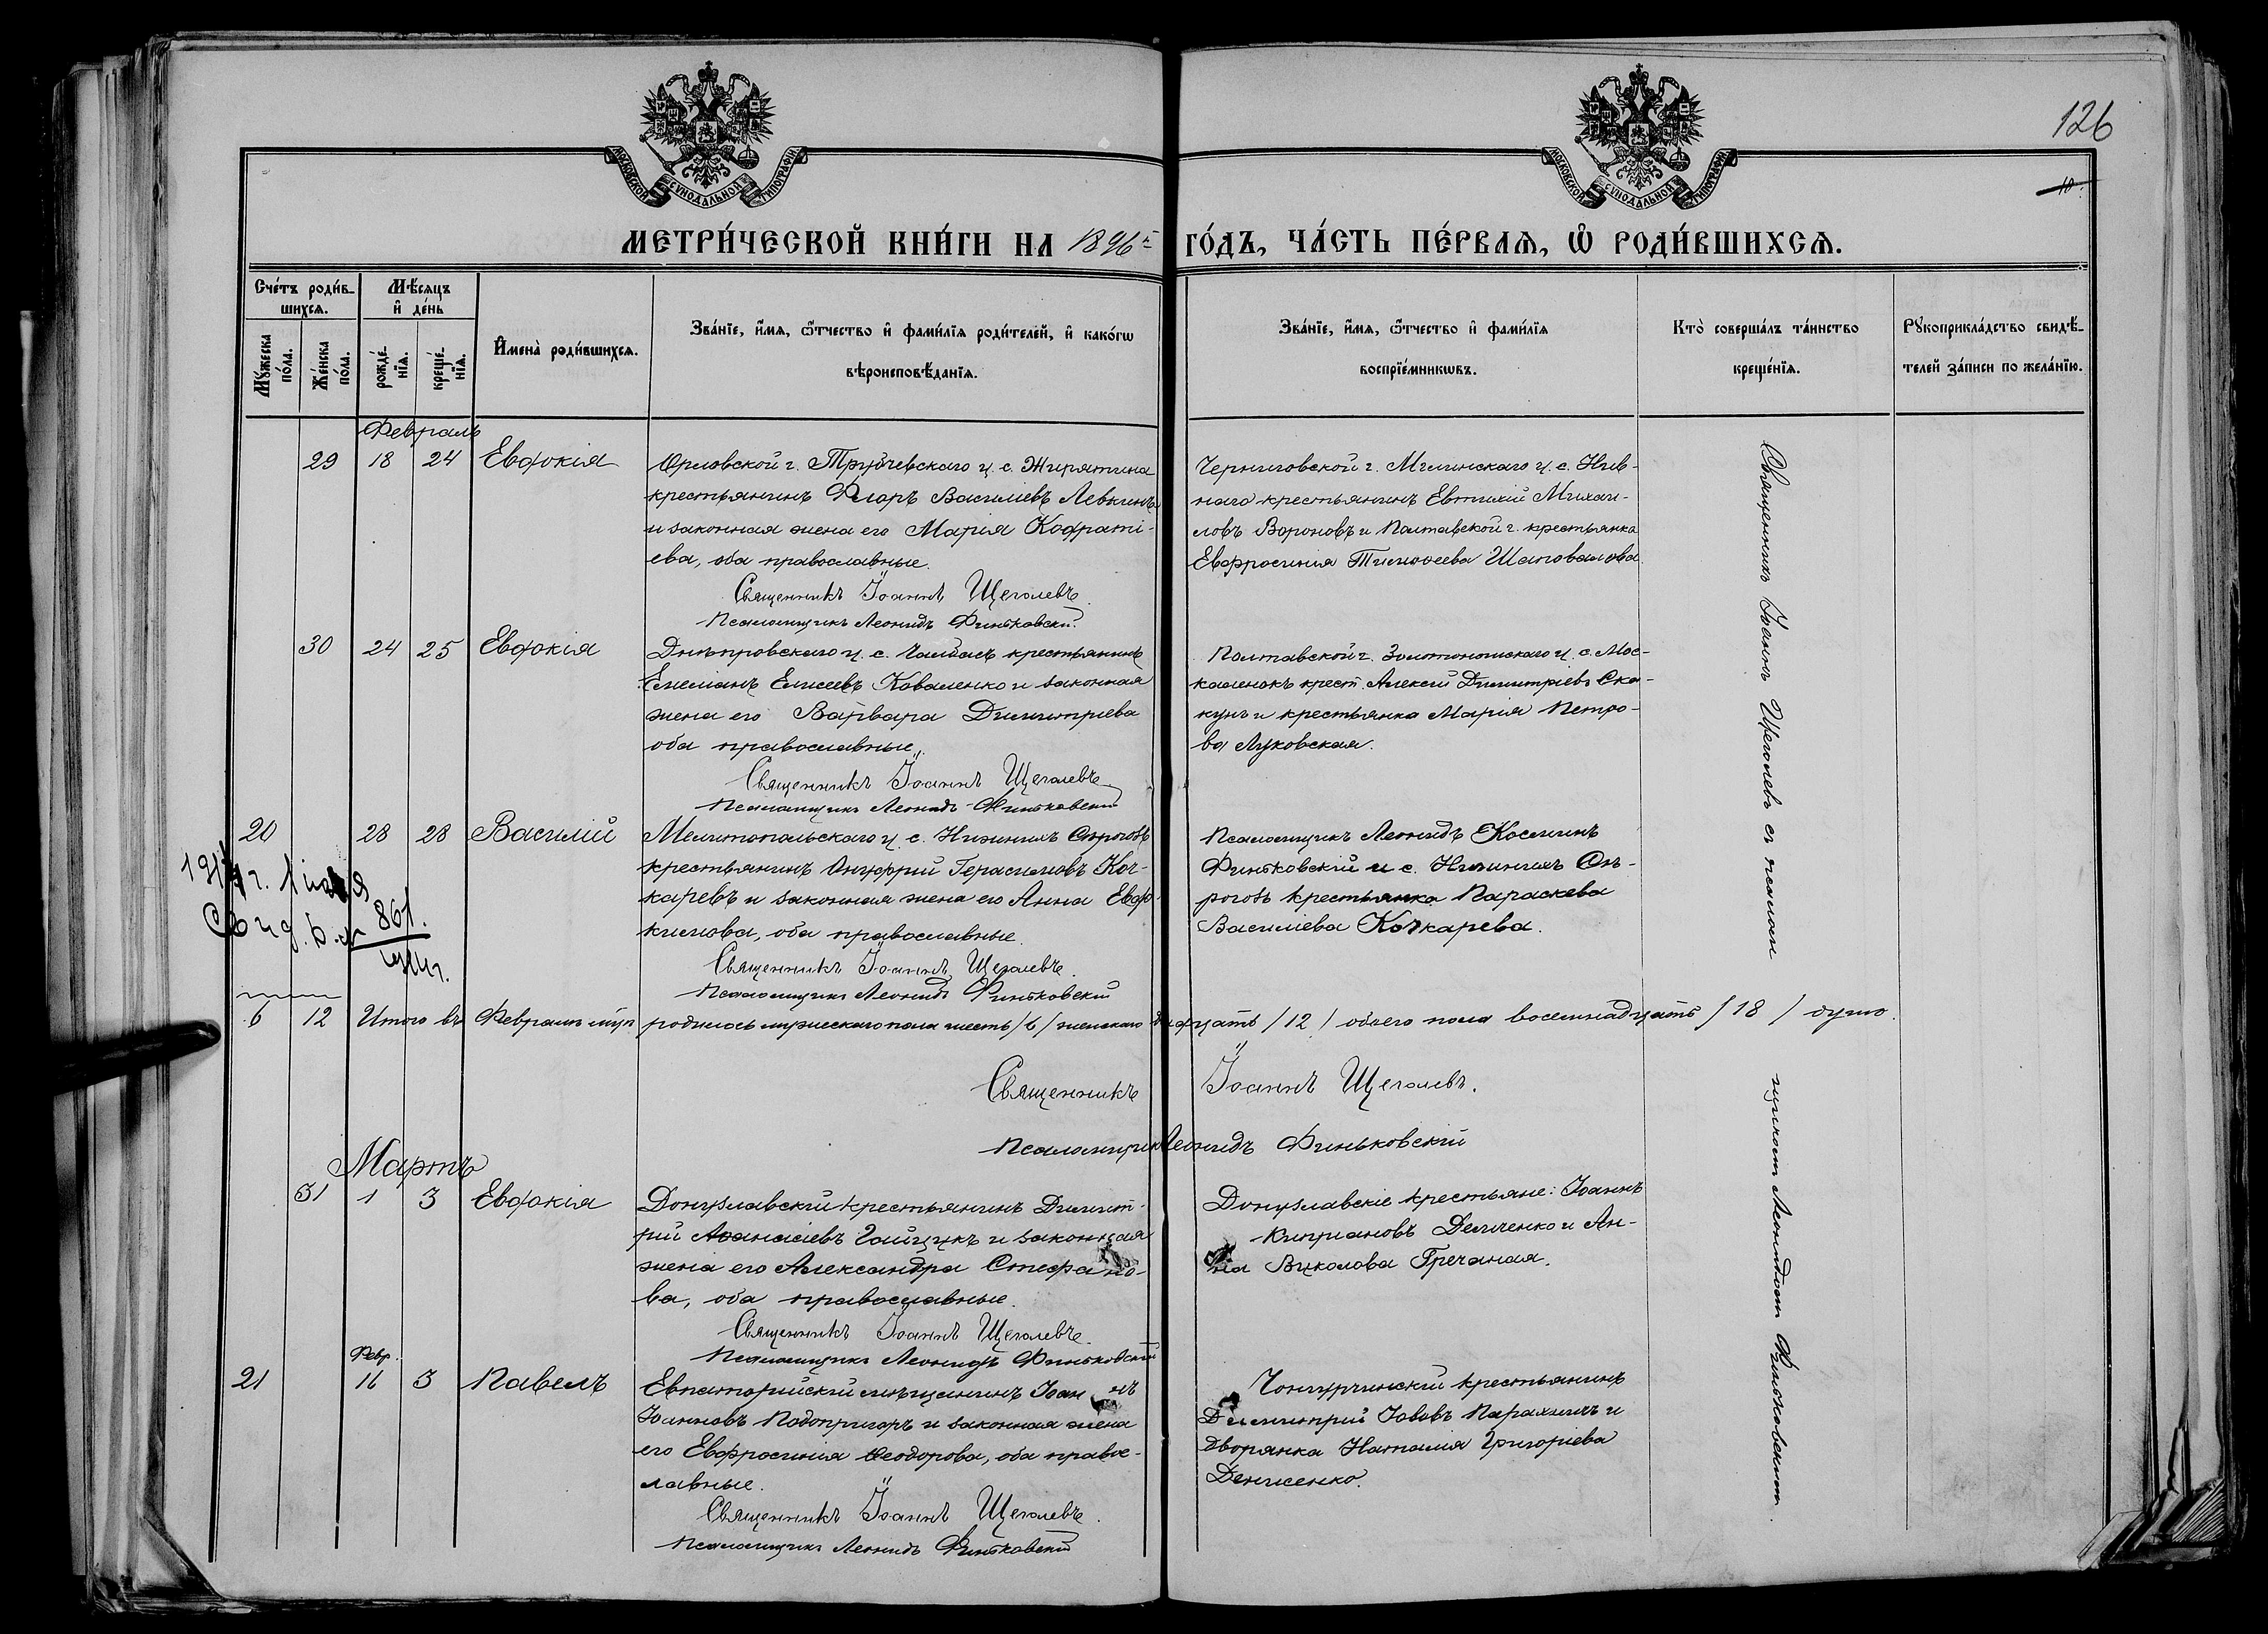 126
10.
МОСКОВСКОЙ СУНОДАЛЬНОЙ ТИПОГРАФІИ
МОСКОВСКОЙ СУНОДАЛЬНОЙ ТИПОГРАФІИ
МЕТРИ́ЧЕСКОЙ КНИ́ГИ НА 1896й ГО́ДЪ, ЧА́СТЬ ПЕ́РВАѦ, Ѽ РОДИ́ВШИХСѦ.
Сче́тъ роди́в-
шихсѧ.
Мꙋ́жеска по́ла.
Же́нска по́ла.
Мѣ́сяцъ
и҆ де́нь
рожде́-
нїѧ.
креще́-
нїѧ.
И҆мена̀ роди́вшихсѧ.
Зва́нїе, и҆́мѧ, ѻ҆́тчество и҆ фами́лїѧ роди́телей, и҆ како́гѡ
вѣроисповѣ́данїѧ.
Зва́нїе, и҆́мѧ, ѻ҆́тчество и҆ фами́лїѧ
воспрїе́мникѡвъ.
Кто̀ соверша́лъ та́инство
креще́нїѧ.
Рꙋкоприкла́дство свидѣ́-
телей за́писи по жела́нїю.
Февраль
29 18 24 Евдокія
Орловской г. Трубчевскаго у. с. Жирятина
крестьянинъ Флоръ Василіевъ Левкинъ
и законная жена его Марія Кодраті-
ева, оба православные.
Священникъ Іоаннъ Щеголевъ.
Псаломщикъ Леонидъ Финьковскій.
Черниговской г. Мглинскаго у. с. Нив-
наго крестьянинъ Евтихій Михаи-
ловъ Вороновъ и Полтавской г. крестьянка
Евфросинія Тимоѳеева Шаповалова
30 24 25 Евдокія
Днѣпровскаго у. с. Чалбасъ крестьянинъ
Емеліанъ Елисеевъ Коваленко и законная
жена его Варвара Димитріева
оба православные.
Священникъ Іоаннъ Щеголевъ
Псаломщикъ Леонидъ Финьковскій
Полтавской г. Золотоношскаго у. с. Мос-
каленокъ крест. Алексій Димитріевъ Ска-
кунъ и крестьянка Марія Петро-
ва Луковская.
20 28 28 Василій
Мелитопольскаго у. с. Нижнихъ Сѣрогозъ
крестьянинъ Онуфрій Герасимовъ Коч-
каревъ и законная жена его Анна Евфи-
кимова, оба православные.
Священникъ Іоаннъ Щеголевъ.
Псаломщикъ Леонидъ Финьковскій
Псаломщикъ Леонидъ Косминъ
Финьковскій и с. Нижнихъ Сѣ-
рогозъ крестьянка Параскева
Василіева Кочкарева.
Свид. 861.
6 12 Итого въ Февралѣ м-цѣ родилось мужескаго пола шесть /6/ женскаго двѣнадцать /12/ обоего пола восемнадцать /18/ душъ.
Священникъ Іоаннъ Щеголевъ.
Псаломщикъ Леонидъ Финьковскій
Мартъ
31 1 3 Евдокія
Донузлавскій крестьянинъ Димит-
рій Аѳанасіевъ Гайдукъ и законная
жена его Александра Стефано-
ва, оба православные.
Священникъ Іоаннъ Щеголевъ.
Псаломщикъ Леонидъ Финьковскій
Донузлавскіе крестьяне: Іоаннъ
Кипріановъ Демченко и Ан-
на Вуколова Гречаная.
Февр.
21 16 3 Павелъ
Евпаторійскій мѣщанинъ Іоаннъ
Іоанновъ Подопригоръ и законная жена
его Евфросинія Ѳеодорова, оба правос-
лавные.
Священникъ Іоаннъ Щеголевъ.
Псаломщикъ Леонидъ Финьковскій
Димитрій Іововъ Парахинъ и
дворянка Наталія Григоріева
Денисенко.
Священникъ Іоаннъ Щеголевъ съ псалом-
щикомъ Леонидомъ Финьковскимъ.